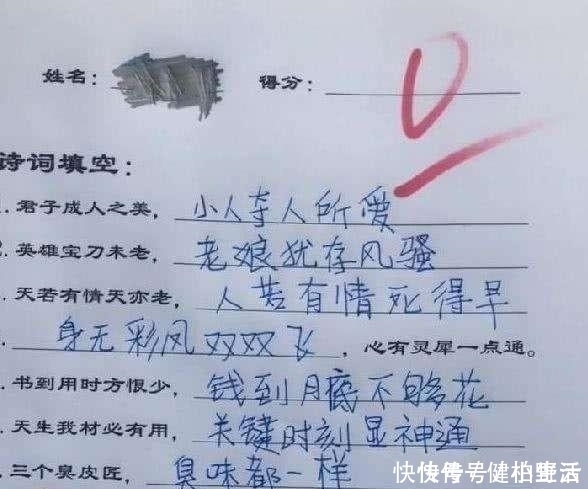 姓名： 得分： 0
诗词填空：
. 君子成人之美， 小人夺人所爱
. 英雄宝刀未老， 老娘犹存风骚
. 天若有情天亦老， 人若有情死得早
. 身无彩风双双飞 ，心有灵犀一点通。
. 书到用时方恨少， 钱到月底不够花
. 天生我材必有用， 关键时刻显神通
. 三个臭皮匠， 臭味都一样